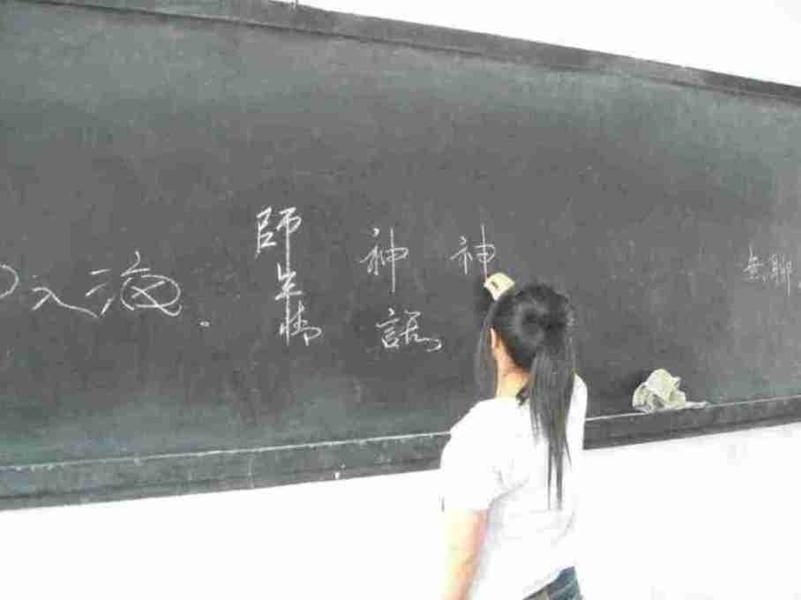 入海.
師生情
神話
神
無聊